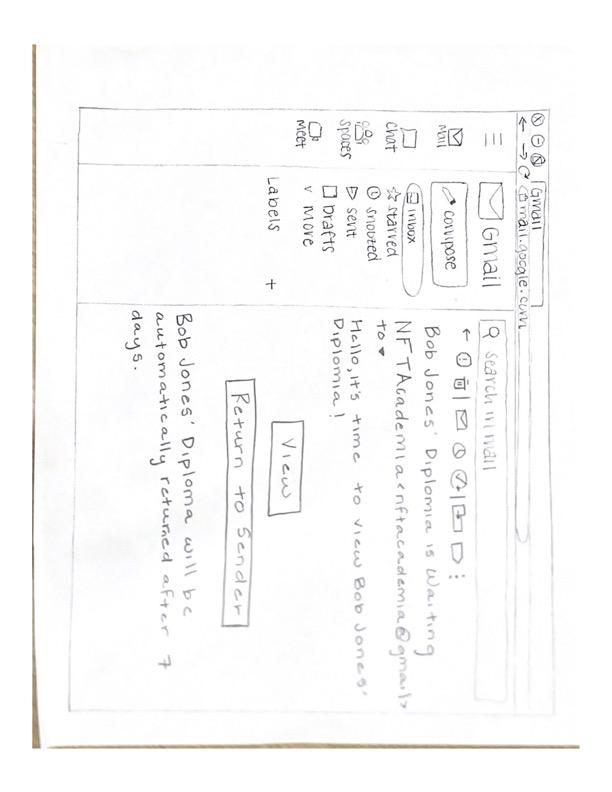 Gmail
mail.google.com
Gmail
Search in mail
Compose
Mail
Chat
Spaces
Meet
Inbox
Starred
Snoozed
Sent
Drafts
More
Labels +
Bob Jones' Diplomia is Waiting
NFTAcademia<nftacademia@gmail>
to
Hello, it's time to view Bob Jones'
Diplomia!
View
Return to Sender
Bob Jones' Diploma will be
automatically returned after 7
days.